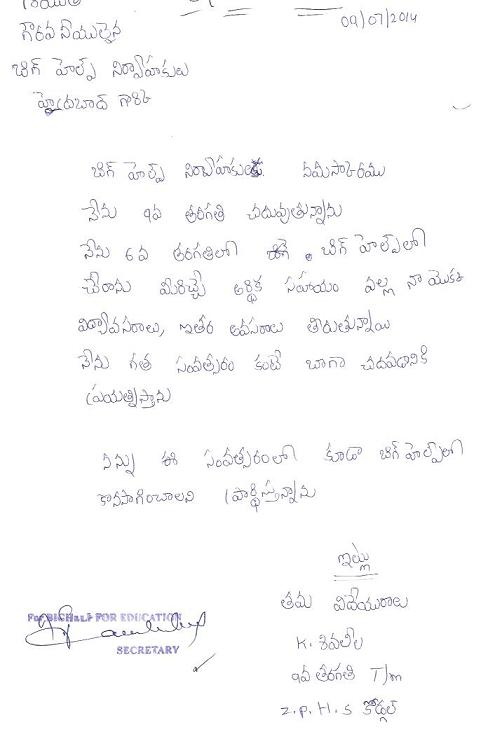 09/07/2014
గౌరవనీయులైన
బిగ్ హెల్ప్ నిర్వాహకులు
హైదరబాద్ గారికి
బిగ్ హెల్ప్ నిర్వాహకులకు నమస్కారము
నేను 9వ తరగతి చదువుతున్నాను
నేను 6వ తరగతిలో బిగ్ హెల్ప్‌లో
చేరాను మీరిచ్చే ఆర్థిక సహాయం వల్ల నా యొక్క
విద్యావసరాలు, ఇతర అవసరాలు తీరుతున్నాయి
నేను గత సంవత్సరం కంటే బాగా చదవడానికి
ప్రయత్నిస్తాను
నన్ను ఈ సంవత్సరంలో కూడా బిగ్ హెల్ప్‌లో
కొనసాగించాలని ప్రార్థిస్తున్నాను
ఇట్లు
తమ విదేయురాలు
K. శివలీల
9వ తరగతి T/m
Z.P.H.S కోడ్గల్
For BIGHELP FOR EDUCATION
SECRETARY